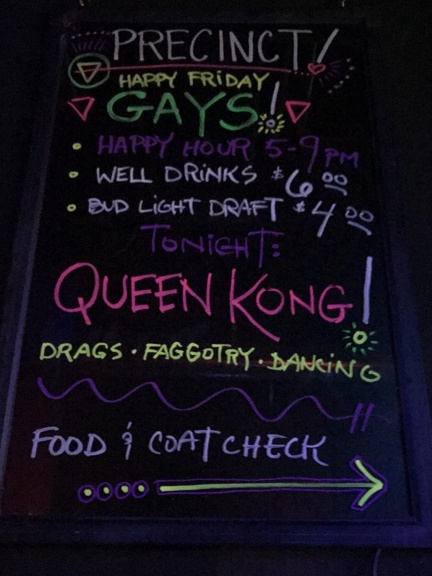 PRECINCT!
HAPPY FRiDAY
GAYS!
• HAPPY HOUR 5-9 PM
• WELL DRiNKS $6.00
• BUD LiGHT DRAFT $4.00
TONiGHT:
QUEEN KONG!
DRAGS • FAGGOTRY • DANCiNG
FOOD & COAT CHECK